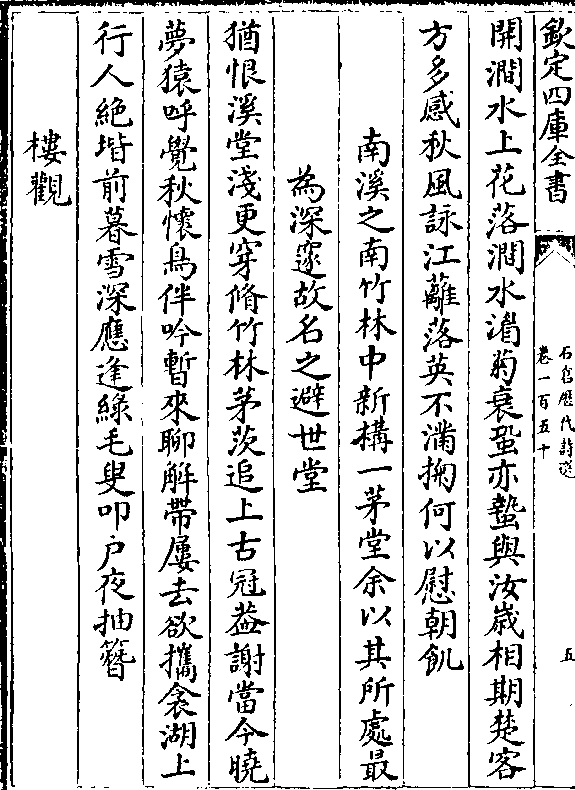 欽定四庫全書
石倉歷代詩選
卷一百五十
五
開澗水上花落澗水湄菊衰蛩亦蟄與汝歲相期楚客
方多感秋風詠江蘺落英不滿掬何以慰朝飢
南溪之南竹林中新構一茅堂余以其所處最
為深邃故名之避世堂
猶恨溪堂淺更穿脩竹林茅茨追上古冠葢謝當今曉
夢猿呼覺秋懷鳥伴吟暫來聊解帶屢去欲攜衾湖上
行人絶堦前暮雪深應逢綠毛叟叩户夜抽簪
樓觀